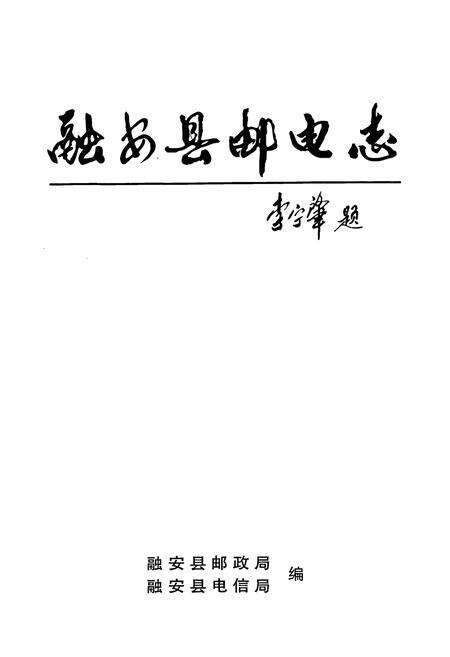 融安县邮电志
李宁肇 题
融安县邮政局
融安县电信局 编